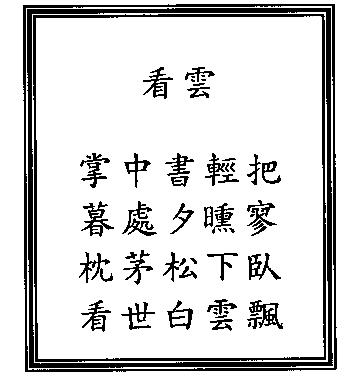 看雲
掌中書輕把
暮處夕曛寥
枕茅松下臥
看世白雲飄